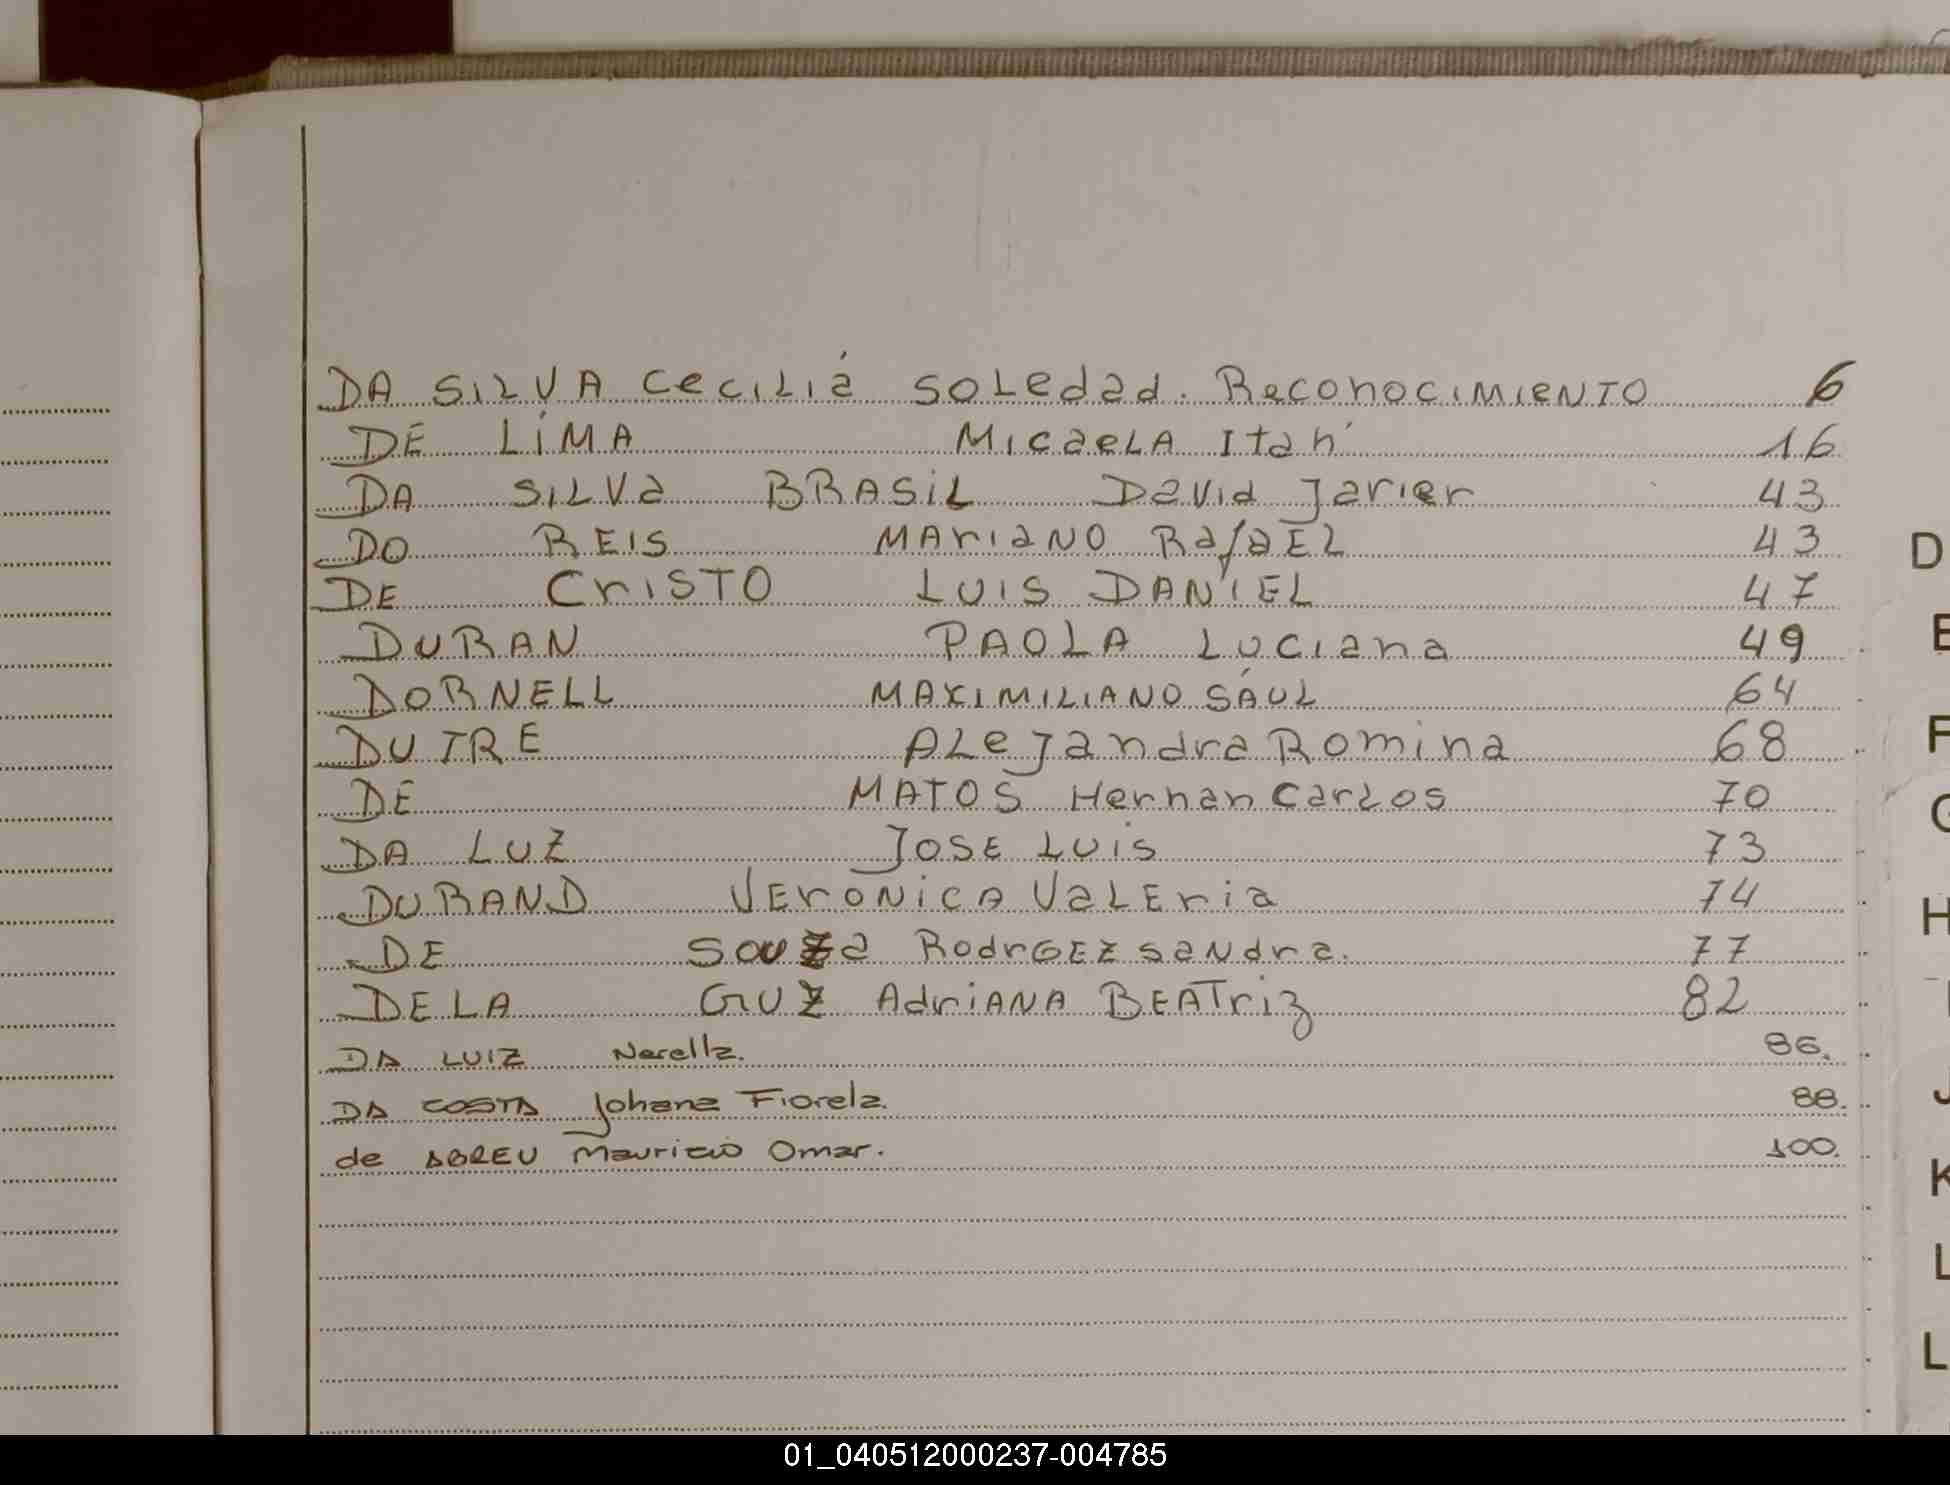 DA SILVA Cecilia SOLedad. Reconocimiento 6
DE LiMA MicaeLA Itah' 16
DA SILVa BRASiL David Javier 43
DO REIS MAriaNO RafaEL 43
DE CriSTO LUIS DANIEL 47
DURAN PAOLA Luciana 49
DORNELL MAXIMILIANO SAUL 64
DUTRE ALeJandra Romina 68
DE MATOS Hernan Carlos 70
DA LUZ JOSE LUiS 73
DURAND VEroNiCA VaLEria 74
DE Souza RodrGEz saNdra. 77
DE LA CruZ AdriANA BEATriz 82
DA LUIZ Narella. 86.
DA COSTA Johana Fiorela. 88.
de ABREU Mauricio Omar. 100.
D
E
F
G
H
I
J
K
L
L
01_040512000237-004785